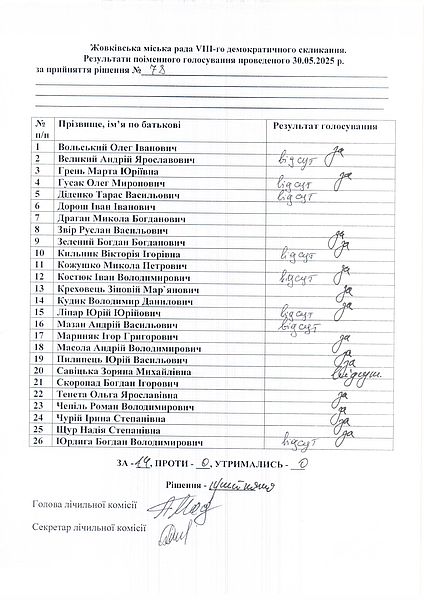 Жовківська міська рада VIII-го демократичного скликання.
Результати поіменного голосування проведеного 30.05.2025 р.
за прийняття рішення № 78
№ п/п Прізвище, ім’я по батькові Результат голосування
1 Вольський Олег Іванович за
2 Великий Андрій Ярославович відсут
3 Грень Марта Юріївна за
4 Гусак Олег Миронович відсут
5 Діденко Тарас Васильович відсут
6 Дорош Іван Іванович
7 Драган Микола Богданович
8 Звір Руслан Васильович за
9 Зелений Богдан Богданович за
10 Кильник Вікторія Ігорівна відсут
11 Кожушко Микола Петрович за
12 Костюк Іван Володимирович відсут
13 Креховець Зіновій Мар`янович за
14 Кудик Володимир Данилович за
15 Ліпар Юрій Юрійович відсут
16 Мазан Андрій Васильович відсут
17 Мариняк Ігор Григорович за
18 Масола Андрій Володимирович за
19 Пилипець Юрій Васильович за
20 Савіцька Зоряна Михайлівна відсут.
21 Скоропад Богдан Ігорович
22 Тенета Ольга Ярославівна за
23 Чепіль Роман Володимирович за
24 Чурій Ірина Степанівна за
25 Щур Надія Степанівна за
26 Юрдига Богдан Володимирович відсут
ЗА - 14, ПРОТИ - 0, УТРИМАЛИСЬ - 0
Рішення - прийняте
Голова лічильної комісії
Секретар лічильної комісії